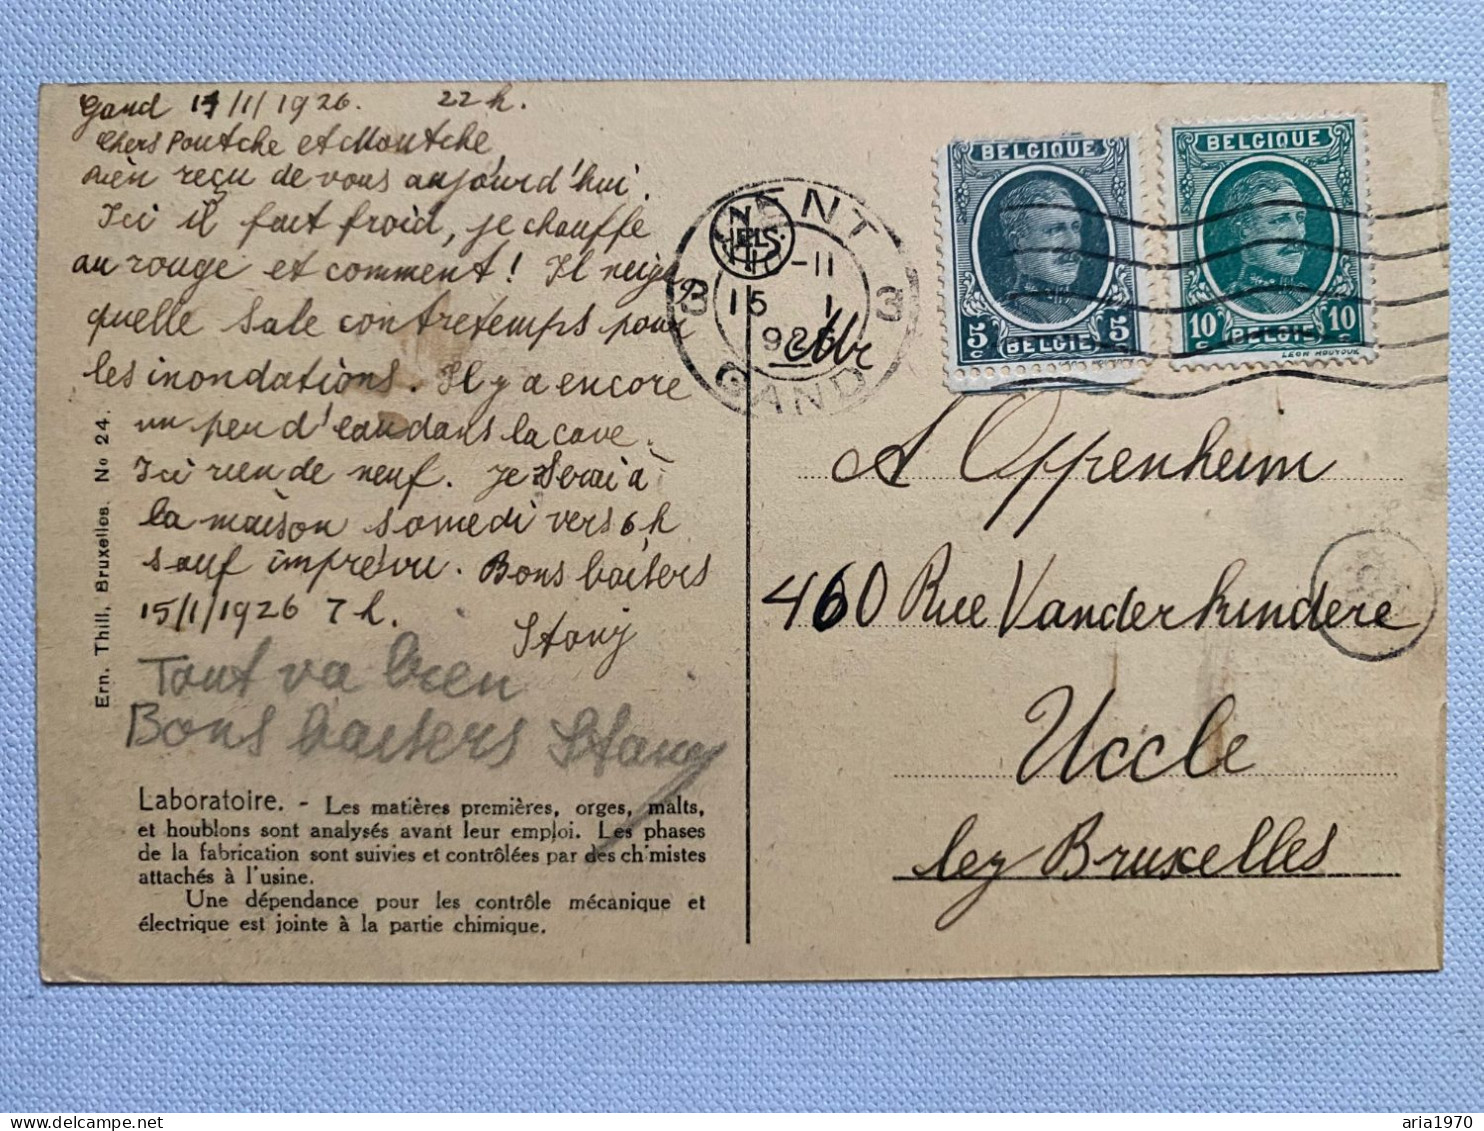 Gand 14/1/1926. 22 h.
Chers Poutche et Moutche,
Rien reçu de vous aujourd'hui.
Ici il fait froid, je chauffe
au rouge et comment! Il neige
quelle sale contretemps pour
les inondations. Il y a encore
un peu d'eau dans la cave.
Ici rien de neuf. Je serai à
la maison samedi vers 6 h
sauf imprévu. Bons baisers
15/1/1926 7 h. Stany
Tout va bien
Bons baisers Stany
Laboratoire. - Les matières premières, orges, malts,
et houblons sont analysés avant leur emploi. Les phases
de la fabrication sont suivies et contrôlées par des chimistes
attachés à l'usine.
Une dépendance pour les contrôle mécanique et
électrique est jointe à la partie chimique.
Ern. Thill, Bruxelles. No 24.
GENT
10-11
3 15 1 3
1926
GAND
BELGIQUE
5c 5c
BELGIË
BELGIQUE
10c 10c
BELGIË
Mr
A Oppenheim
460 Rue Vanderkindere
Uccle
lez Bruxelles
aria1970